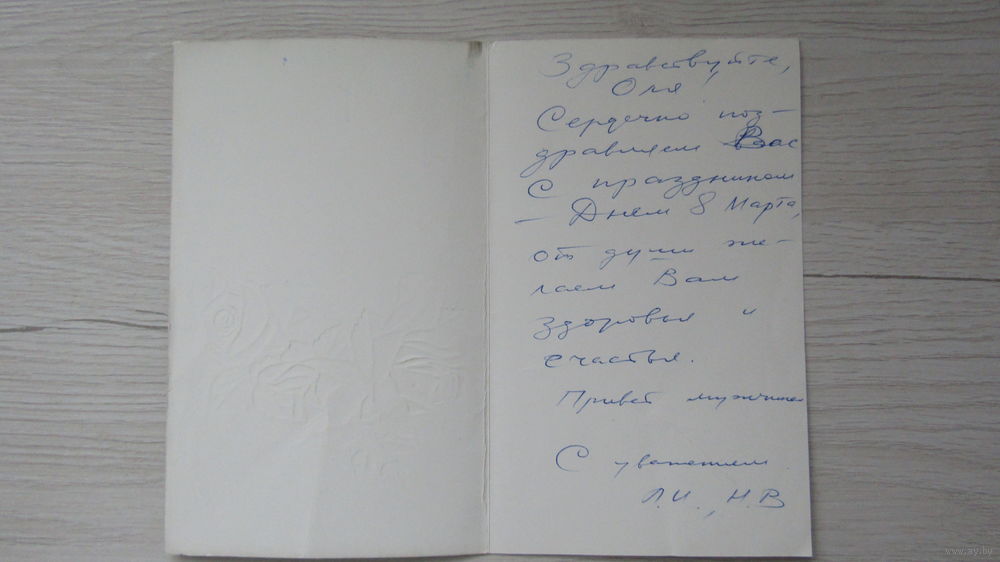 Здравствуйте,
Оля!
Сердечно поз-
дравляем Вас
С праздником
— Днём 8 Марта,
от души же-
лаем Вам
здоровья и
счастья.
Привет мужчинам
С уважением
Л.И., Н.В
www.ay.by